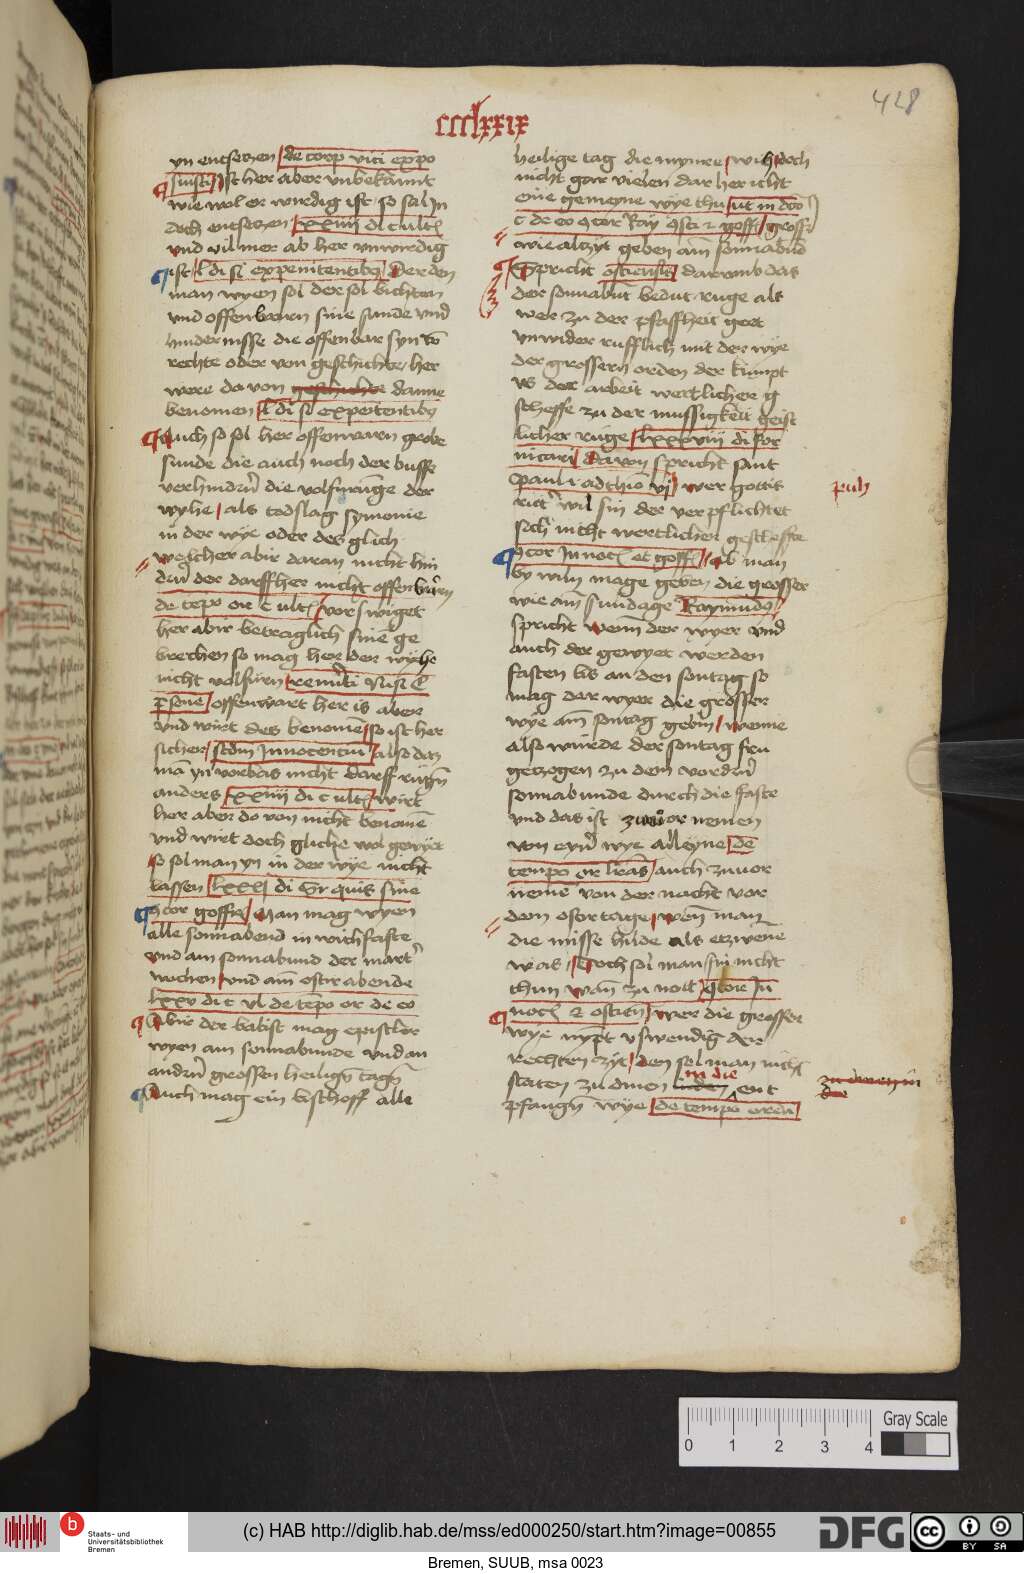 428
ccclxxix
yn entseczen de corp vici exppo
sinisti Ist her aber vnbekannt
wie wol er wirdig ist so sal In
doch entseczen xxiiii di c ult
vnd vil mer ab her vnwirdig
ist l di si expenitentibus Der den
man wyen sol der sol bichten
vnd offenbarn sine sunde vnd
hindernisse die offenbar syn võ
rechte oder von geschichte her
were do von geschichte danne
benomen l di si expeitentibus
Auch so sol her offenwarn grobe
sunde die auch noch der busse
verhindern die volfurunge der
wyhe als todslag symonie
in der wye oder des glich
welcher abir daran nicht hin
dert der darff her nicht offenbarn
de tepo or c ult vorswiget
her abir betraglich sine ge
brechen so mag her der wyhe
nicht volfurn
psone offenwart her is aber
vnd wirt des benomē so ist her
sicher scdm Innocentiū also daz
mā yn vorbas nicht darff rugn
anders xxiiii di c ult wirt
her aber do von nicht benomē
vnd wirt doch gliche wol gewyet
so sol man yn in der wye nicht
lassen lxxxi di Si quis sine
gcor goffr Man mag wyen
alle sonnabend in wichfaste
vnd am sonnabund der mart
wochen vnd am ostir abende
lxxv di c vl de tepo or de eo
Abir der babist mag epistler
wyen am sonnabunde vnd an
andrn grossen heilign tagn
Auch mag ein bischoff alle
heilige tag die mynre wich doch
nicht gar vielen dar her icht
eine gemeyne wye thu ut in dco
c de eo gcor Ray gsti z goff goff
wie alczyt geben am sonnabnd
Spricht ostiensis darumb das
der sonnabnt bedut ruge als
wer zu der pfaffheit get
vnwider rufflich mit der wye
der grossern orden der kumpt
vs der arbeit wertlicher g
scheffe zu der mussigkeit geist
licher ruge lxxxviii di for
nicari Davon spricht sant
Paul i ad thio vi wer gottis
ritter wil sin der verpflichtet
sich nicht wertlicher gescheffte
gcor In noc et goff Ab man
by wiln mage geben die grosser
wie am sundage Raymudus
spricht wenn der wyer vnd
auch der gewyet werden
fasten bis an den sontag so
mag dar wyer die grosser
wye am sontag gebin wenne
also wurde der sontag fru
geczogen zu dem vordern
sonnabunde durch die faste
vnd das ist zuuor nemen
von eynr wye alleyne de
tempo or lras auch zuuor
neme von der nacht vor
dem ostertage wen man
die misse hilde als etzwene
was Doch sol man sin nicht
thun wan zu noit gcor In
noc z ostien wer die grosser
wye nympt vswendig der
rechten zyt den sol man nicht
staten zu dinen in den in die ent
pfangn wye de tempo oren
paulus
zu dinen in
die
0 1 2 3 4
Gray Scale
b
Staats- und
Universitätsbibliothek
Bremen
(c) HAB http://diglib.hab.de/mss/ed000250/start.htm?image=00855
DFG
cc BY SA
Bremen, SUUB, msa 0023